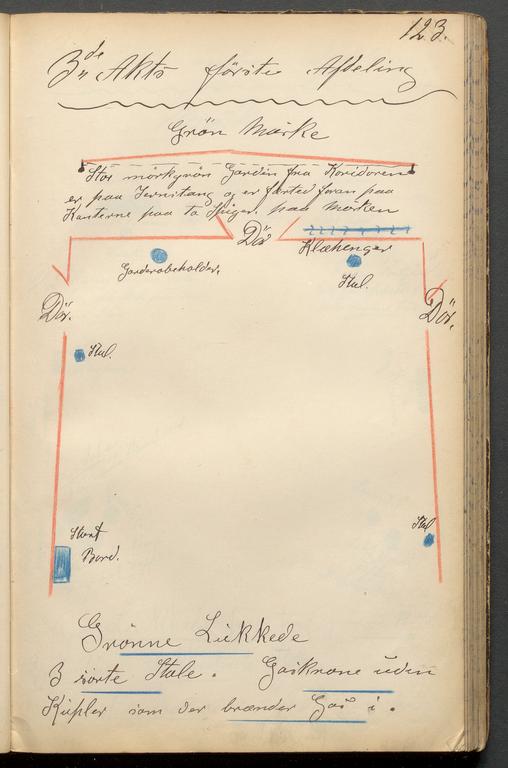 123.
3de Akts förste Afdeling
Grön Mærke
Stor mörkgrön Gardin fra Koridoren
er paa Jernstang og er færted foran paa
Kanterne paa to Stiger. paa Mærken
Dör
Klæhenger
Garderobeholder.
Stol.
Dör.
Dör.
Stol.
Stort
Bord.
Stol
Grönne Lukkede
3 sorte Stole. Gaskrone uden
Kupler som der brænder Gas i.